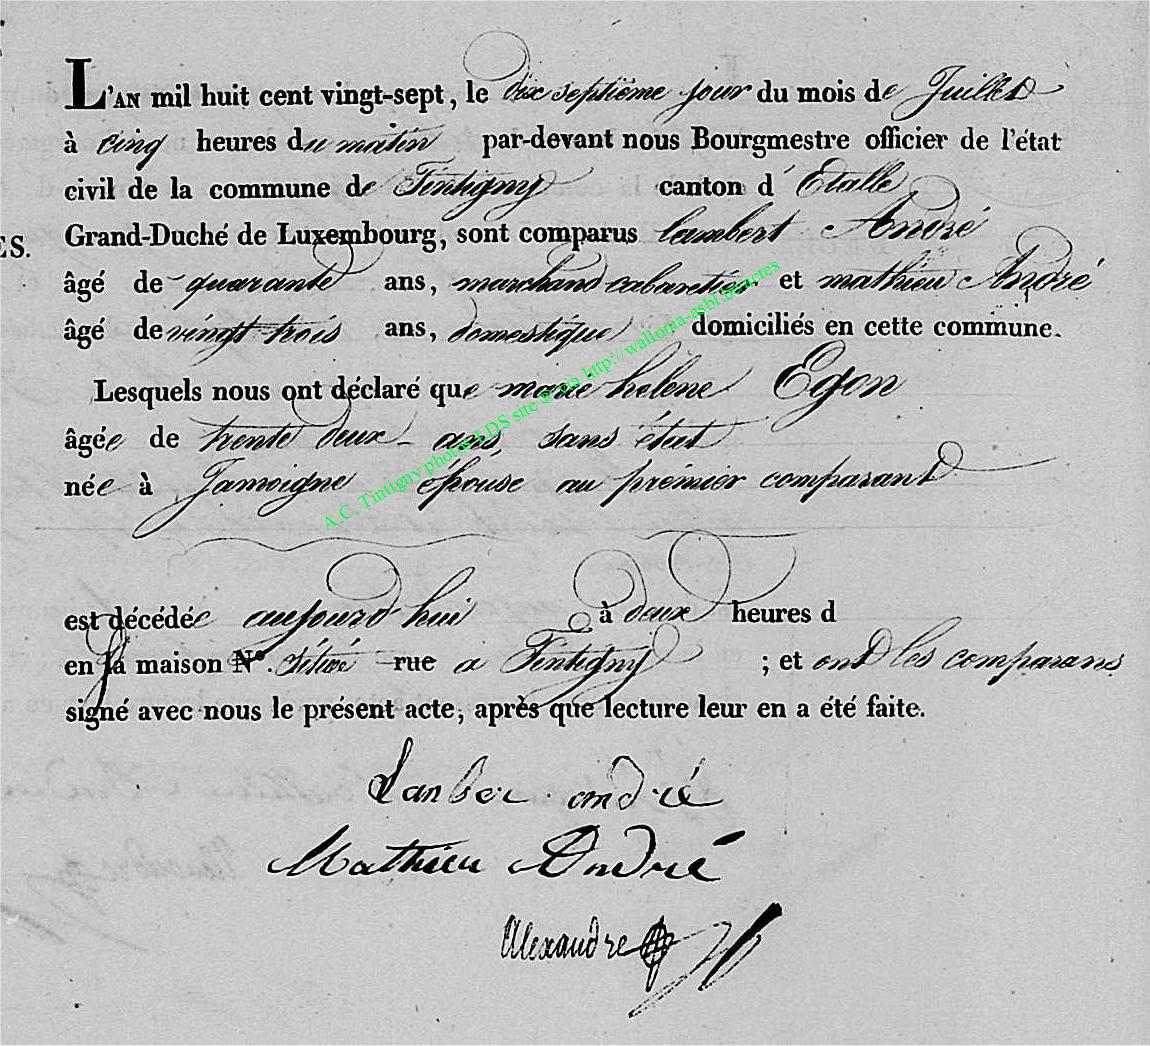 ES.
L'AN mil huit cent vingt-sept, le dix septième jour du mois de Juillet
à cinq heures du matin par-devant nous Bourgmestre officier de l'état
civil de la commune de Tintigny canton d' Etalle
Grand-Duché de Luxembourg, sont comparus lambert André
âgé de quarante ans, marchand cabaretier et mathieu André
âgé de vingt trois ans, domestique domiciliés en cette commune.
Lesquels nous ont déclaré que marie helene Egon
âgée de trente deux ans sans état
née à Jamoigne épouse au premier comparant
est décédée aujourd hui à deux heures d
en sa maison N°. sitiée rue a Tintigny ; et ont les comparans
signé avec nous le présent acte, après que lecture leur en a été faite.
Lanber andré
Mathieu André
Alexandre
A.C. Tintigny photos LDS site via http://wallonia-asbl.be/actes